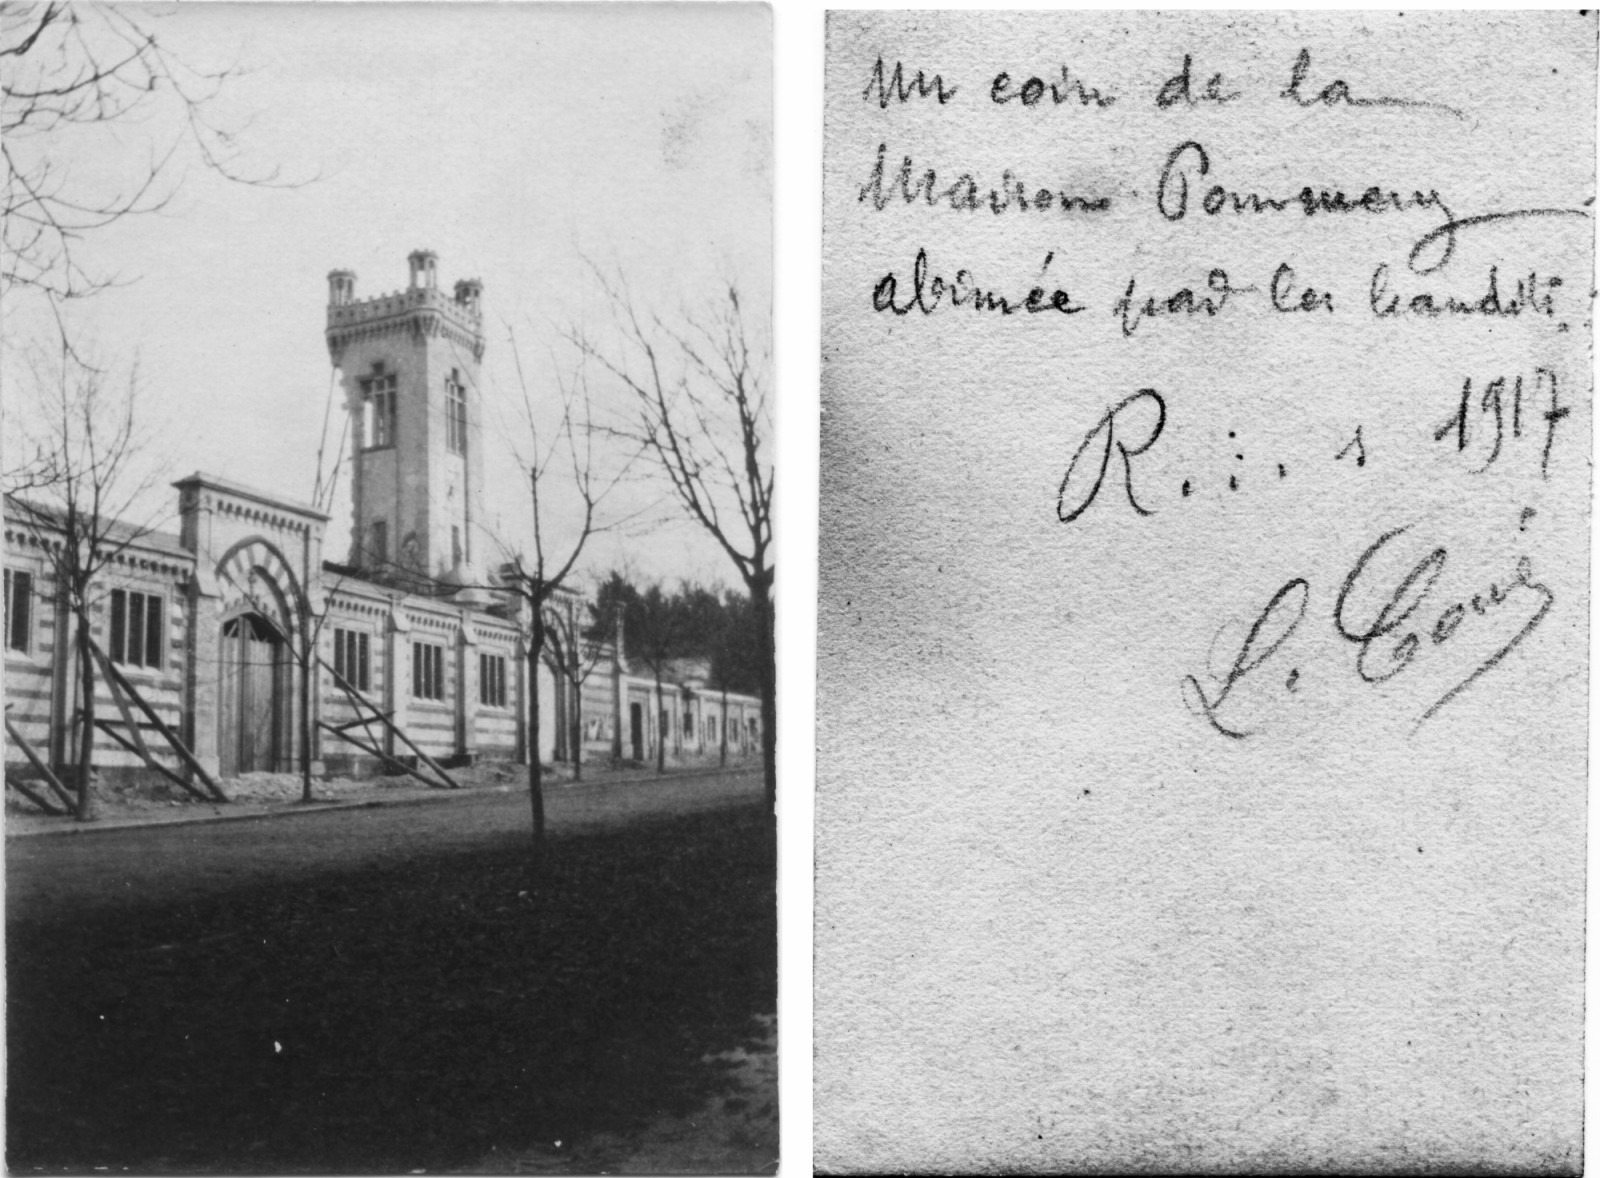 Un coin de la
Maison Pommery
abimée par les bandits.
R. i. s 1917
L.